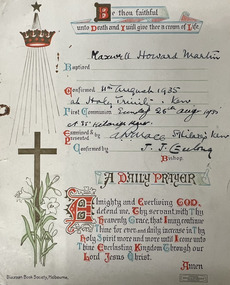 Be thou faithful
unto Death and I will give thee a crown of Life.
Maxwell Howard Martin
Baptized
Confirmed 11th August 1935
at Holy Trinity, Kew
First Communion Sunday 25th Aug 1935
at St
Examined &
Presented by St Hilary's Kew
Confirmed by
Bishop.
A DAILY PRAYER
Almighty and Everliving GOD,
defend me, Thy servant, with Thy
Heavenly Grace, that I may continue
Thine for ever, and daily increase in Thy
Holy Spirit more and more until I come unto
Thine Everlasting Kingdom Through our
Lord Jesus Christ.
Amen
Diocesan Book Society, Melbourne.